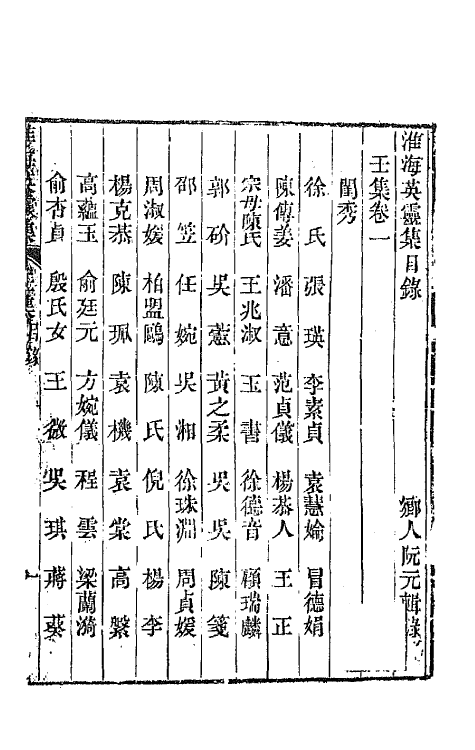 淮海英靈集目錄 鄉人阮元輯錄
壬集卷一
閨秀
徐氏 張瑛 李素貞 袁慧婾 冒德娟
陳傳姜 潘意 范貞儀 楊恭人 王正
宗母陳氏 王兆淑 玉書 徐德音 顧瑞麟
郭砎 吳藼 黃之柔 吳吳 陳箋
邵笠 任婉 吳湘 徐珠淵 周貞媛
周淑媛 柏盟鷗 陳氏 倪氏 楊李
楊克恭 陳珮 袁機 袁棠 高繄
高蘊玉 俞廷元 方婉儀 程雲 梁蘭漪
俞杏貞 殷氏女 王微 吳琪 蔣葵